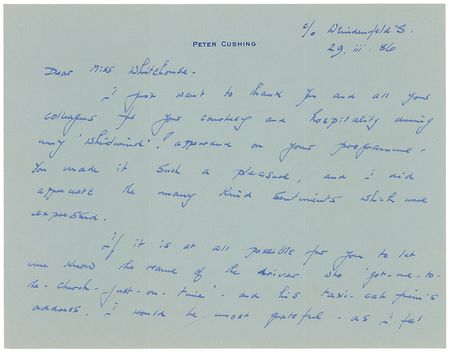 PETER CUSHING
c/o Weidenfeld's.
29. iii. 86
Dear Miss Whitehouse.
I just want to thank you and all your
colleagues for your courtesy and hospitality during
my 'whirlwind'! appearance on your programme.
You made it such a pleasure, and i did
appreciate the many kind sentiments which were
expressed.
If it is at all possible for you to let
me know the name of the driver who 'got-me-to-
the-church-just-on-time'- and his taxi-cab firm's
address, i would be most grateful - as i feel